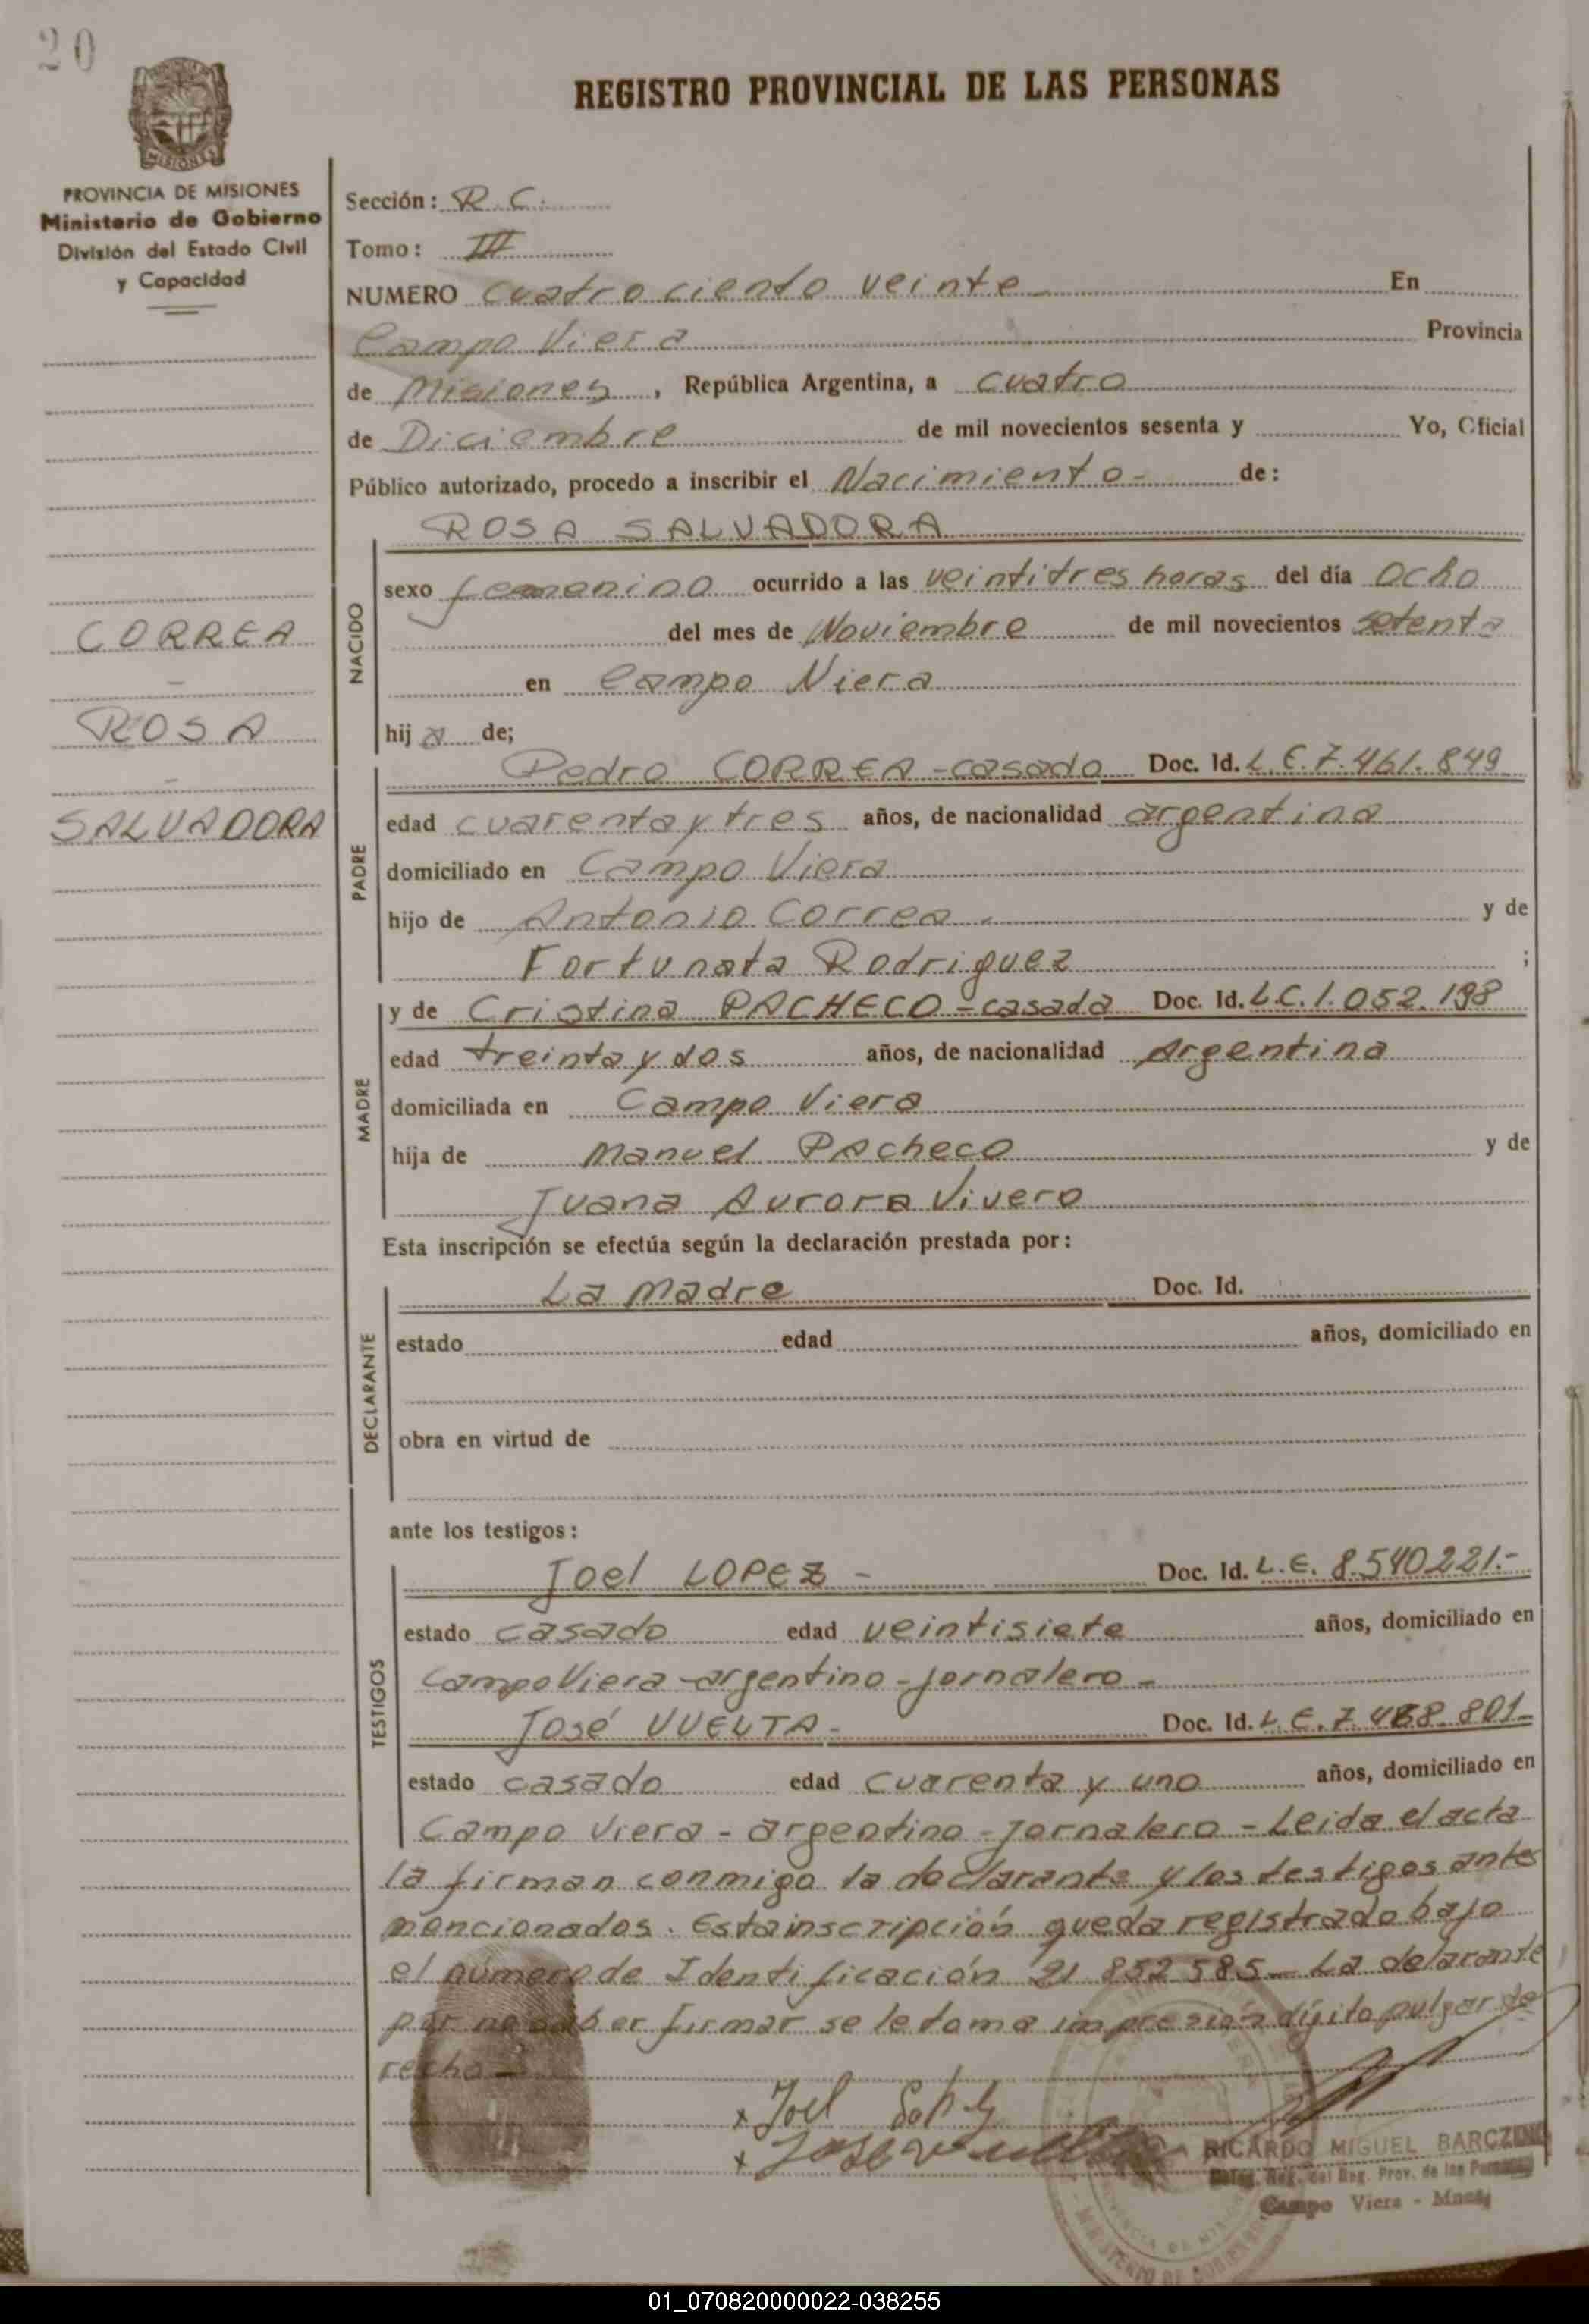 20
REGISTRO PROVINCIAL DE LAS PERSONAS
MISIONES
PROVINCIA DE MISIONES
Ministerio de Gobierno
División del Estado Civil
y Capacidad
CORREA
-
ROSA
-
SALVADORA
Sección: R. C.
Tomo: III
NUMERO cuatrociento veinte En
Campo Viera Provincia
de Misiones, República Argentina, a cuatro
de Diciembre de mil novecientos sesenta y Yo, Oficial
Público autorizado, procedo a inscribir el Nacimiento- de:
NACIDO
ROSA SALVADORA
sexo femenino ocurrido a las veintitres horas del día ocho
del mes de Noviembre de mil novecientos setenta
en Campo Viera
hija de;
PADRE
Pedro CORREA-casado Doc. Id. L.E.7.461.849
edad cuarenta y tres años, de nacionalidad argentina
domiciliado en Campo Viera
hijo de Antonio Correa. y de
Fortunata Rodriguez ;
MADRE
y de Cristina PACHECO-casada Doc. Id. L.C.1.052.198
edad treinta y dos años, de nacionalidad Argentina
domiciliada en Campo Viera
hija de Manuel PAcheco y de
Juana Aurora Vivero
Esta inscripción se efectúa según la declaración prestada por:
DECLARANTE
La Madre Doc. Id.
estado edad años, domiciliado en
obra en virtud de
ante los testigos:
TESTIGOS
Joel LOPEZ - Doc. Id. L.E. 8.540221.-
estado casado edad veintisiete años, domiciliado en
Campo Viera-argentino-jornalero-
José VUELTA- Doc. Id. L.E.7.488.801-
estado casado edad cuarenta y uno años, domiciliado en
Campo Viera-argentino-jornalero-Leida el acta
la firman conmigo la declarante y los testigos antes
mencionados. Esta inscripción queda registrado bajo
el número de Identificación 21 852 585- La delarante
por no saber firmar se le toma impresión dígito pulgar de
recho-
x Joel
x Jose
RICARDO MIGUEL BARCZUK
Reg. del Reg. Prov. de las
Campo Viera - Mnes
01_070820000022-038255